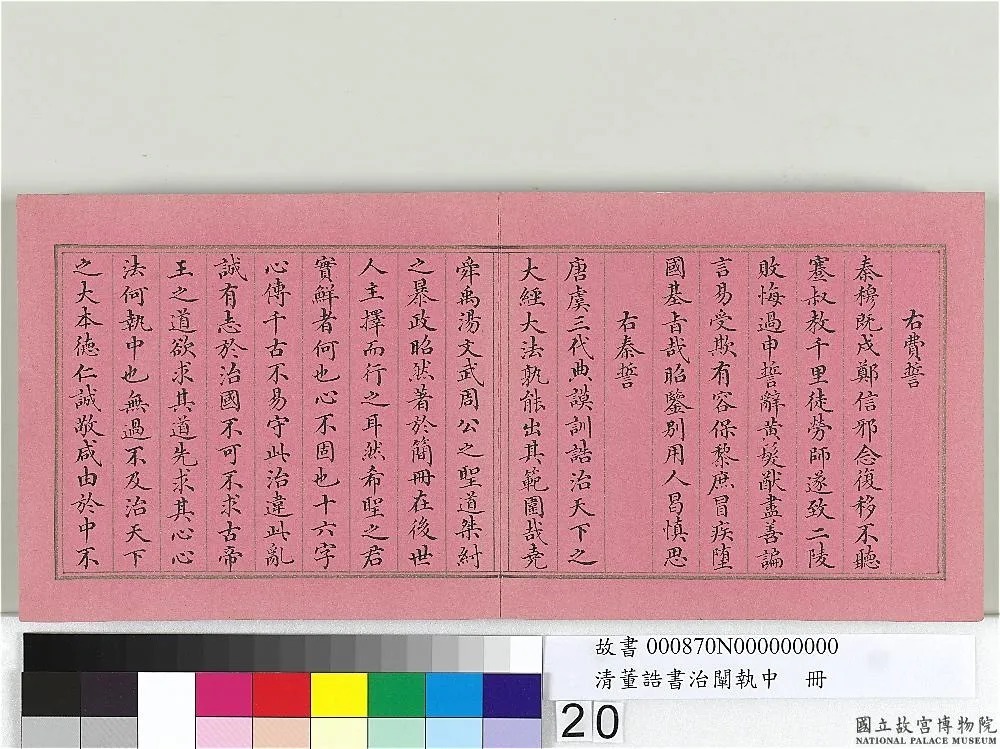 右費誓
秦穆既戍鄭信邪念復移不聽
蹇叔教千里徒勞師遂致二陵
敗悔過申誓辭黃髮猷盡善諞
言易受欺有容保黎庶冒疾墮
國基旨哉昭鑒別用人曷慎思
右秦誓
唐虞三代典謨訓誥治天下之
大經大法孰能出其範圍哉堯
舜禹湯文武周公之聖道桀紂
之暴政昭然著於簡冊在後世
人主擇而行之耳然希聖之君
實鮮者何也心不固也十六字
心傳千古不易守此治違此亂
誠有志於治國不可不求古帝
王之道欲求其道先求其心心
法何執中也無過不及治天下
之大本德仁誠敬咸由於中不
故書 000870N000000000
清董誥書治闡執中 冊
20
國立故宮博物院
NATIONAL PALACE MUSEUM